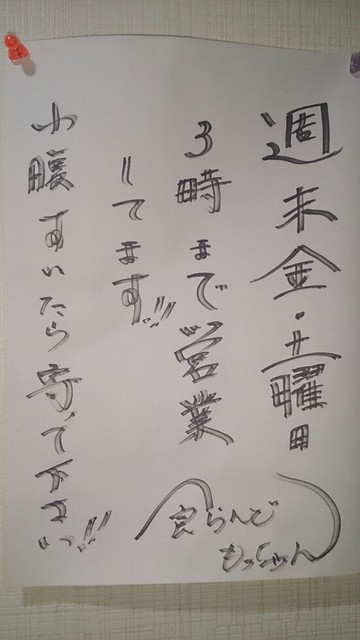 週末金・土曜日
3時まで営業
してます!!!
小腹すいたら寄って下さい!!!
食らんど
もっちゃん